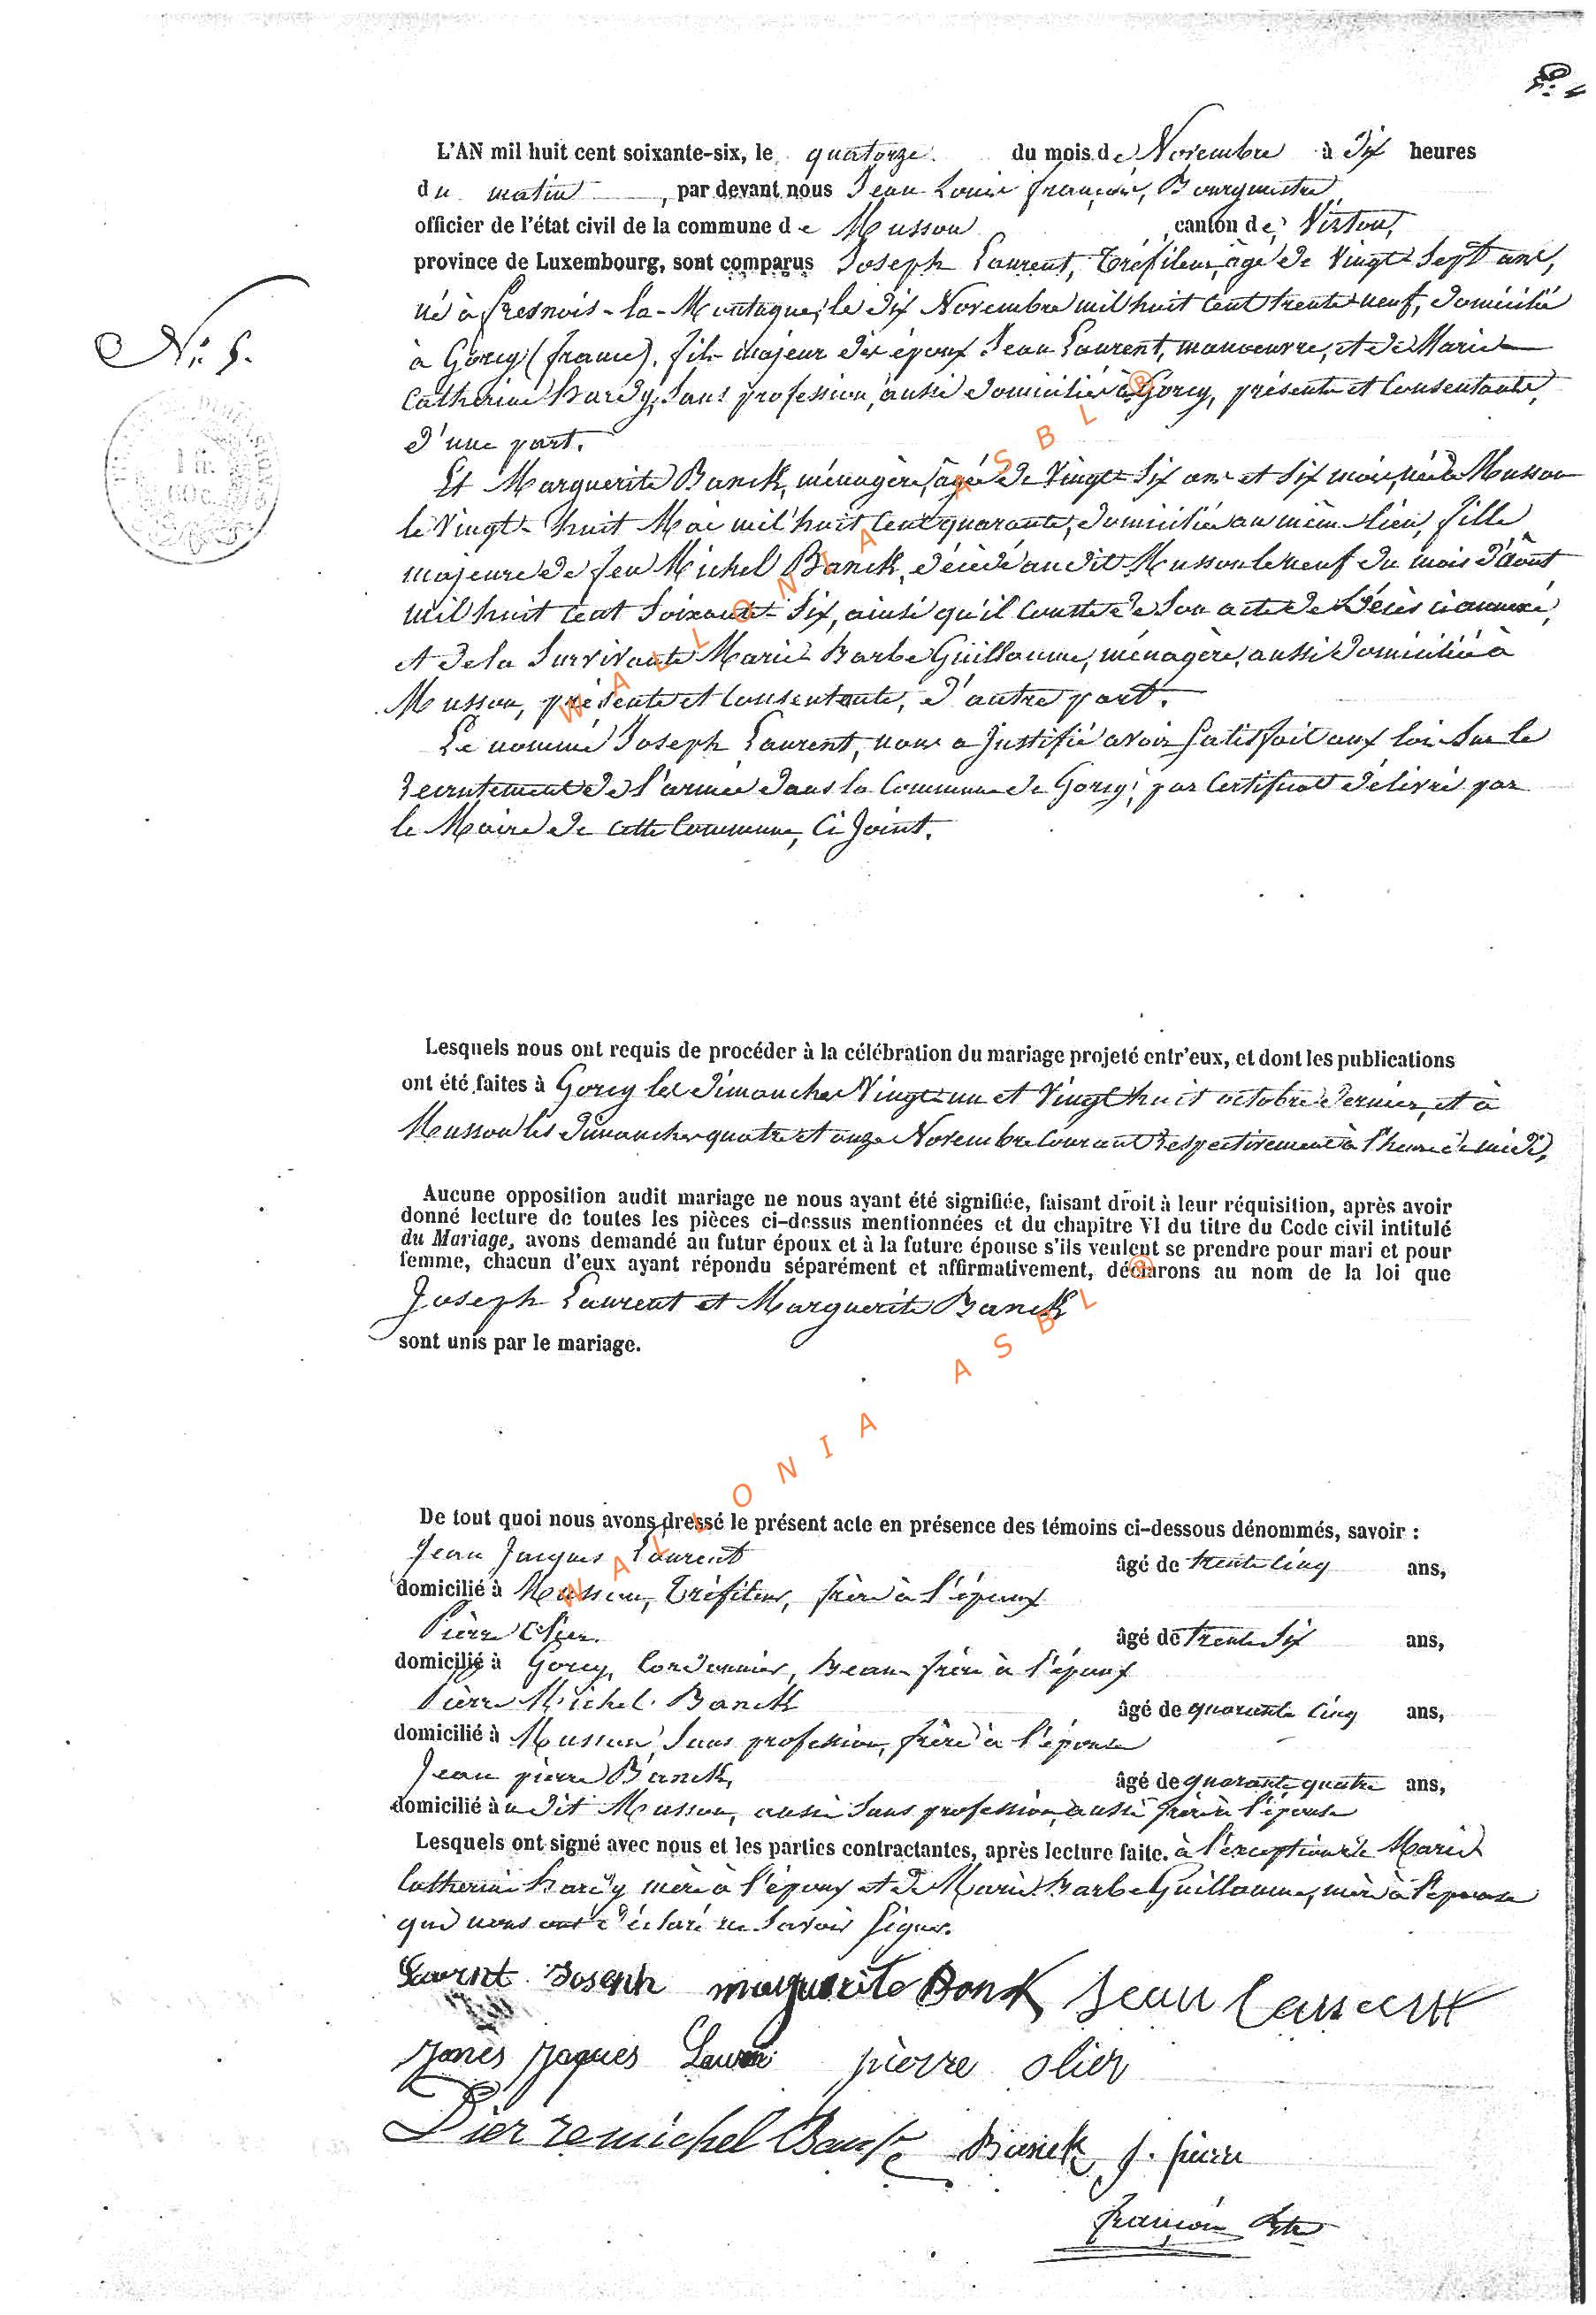 L'AN mil huit cent soixante-six, le quatorze du mois de Novembre à dix heures
du matin, par devant nous Jean Louis françois, Bourgmestre
officier de l'état civil de la commune de Musson canton de Virton,
province de Luxembourg, sont comparus Joseph Laurent, Tréfileur, âgé de Vingt Sept ans,
né à fresnois-la-Montagne, le dix Novembre mil huit cent trente neuf, domicilié
N: 5.
à Gorcy (france), fils majeur des époux Jean Laurent, manoeuvre, et de Marie
Catherine Hardy, Sans profession, aussi domiciliés à Gorcy, présents et Consentants,
d'une part.
1 fr.
60 c.
Et Marguerite Banck, ménagère, âgée de Vingt Six ans et Six mois, née à Musson
le Vingt-huit Mai mil huit Cent quarante, domiciliée au même lieu, fille
majeure de feu Michel Banck, décédé au dit Musson le neuf du mois d'août
mil huit Cent Soixante Six, ainsi qu'il Conste de Son acte de Décès ci annexé,
et de la Survivante Marie Barbe Guillaume, ménagère, aussi domiciliée à
Musson, présente et Consentante, d'autre part.
Le nommé Joseph Laurent, nous a Justifié avoir Satisfait aux lois Sur le
recrutement de l'armée dans la Commune de Gorcy, par Certificat délivré par
le Maire de cette Commune, Ci Joint.
Lesquels nous ont requis de procéder à la célébration du mariage projeté entr'eux, et dont les publications
ont été faites à Gorcy les dimanches Vingt un et Vingt huit octobre dernier, et à
Musson les dimanches quatre et onze Novembre Courant respectivement à l'heure de midi,
Aucune opposition audit mariage ne nous ayant été signifiée, faisant droit à leur réquisition, après avoir
donné lecture de toutes les pièces ci-dessus mentionnées et du chapitre VI du titre du Code civil intitulé
du Mariage, avons demandé au futur époux et à la future épouse s'ils veulent se prendre pour mari et pour
femme, chacun d'eux ayant répondu séparément et affirmativement, déclarons au nom de la loi que
Joseph Laurent et Marguerite Banck
sont unis par le mariage.
De tout quoi nous avons dressé le présent acte en présence des témoins ci-dessous dénommés, savoir :
Jean Jacques Laurent âgé de trente Cinq ans,
domicilié à Musson, Tréfileur, frère à l'époux
Pierre Olier. âgé de trente Six ans,
domicilié à Gorcy, Cordonnier, Beau-frère à l'époux
Pierre Michel Banck âgé de quarante Cinq ans,
domicilié à Musson, Sans profession, frère à l'épouse
Jean pierre Banck, âgé de quarante quatre ans,
domicilié audit Musson, aussi Sans profession, aussi frère à l'épouse
Lesquels ont signé avec nous et les parties contractantes, après lecture faite. à l'exception de Marie
Catherine hardy mère à l'époux et de Marie Barbe Guillaume, mère à l'épouse
qui nous ont déclaré ne Savoir Signer.
Laurent Joseph marguerite Banck Jean Laurent
Jaques pierre olier
Pierre michel Banck Banck J. pierre
françois
WALLONIA ASBL ®
WALLONIA ASBL ®